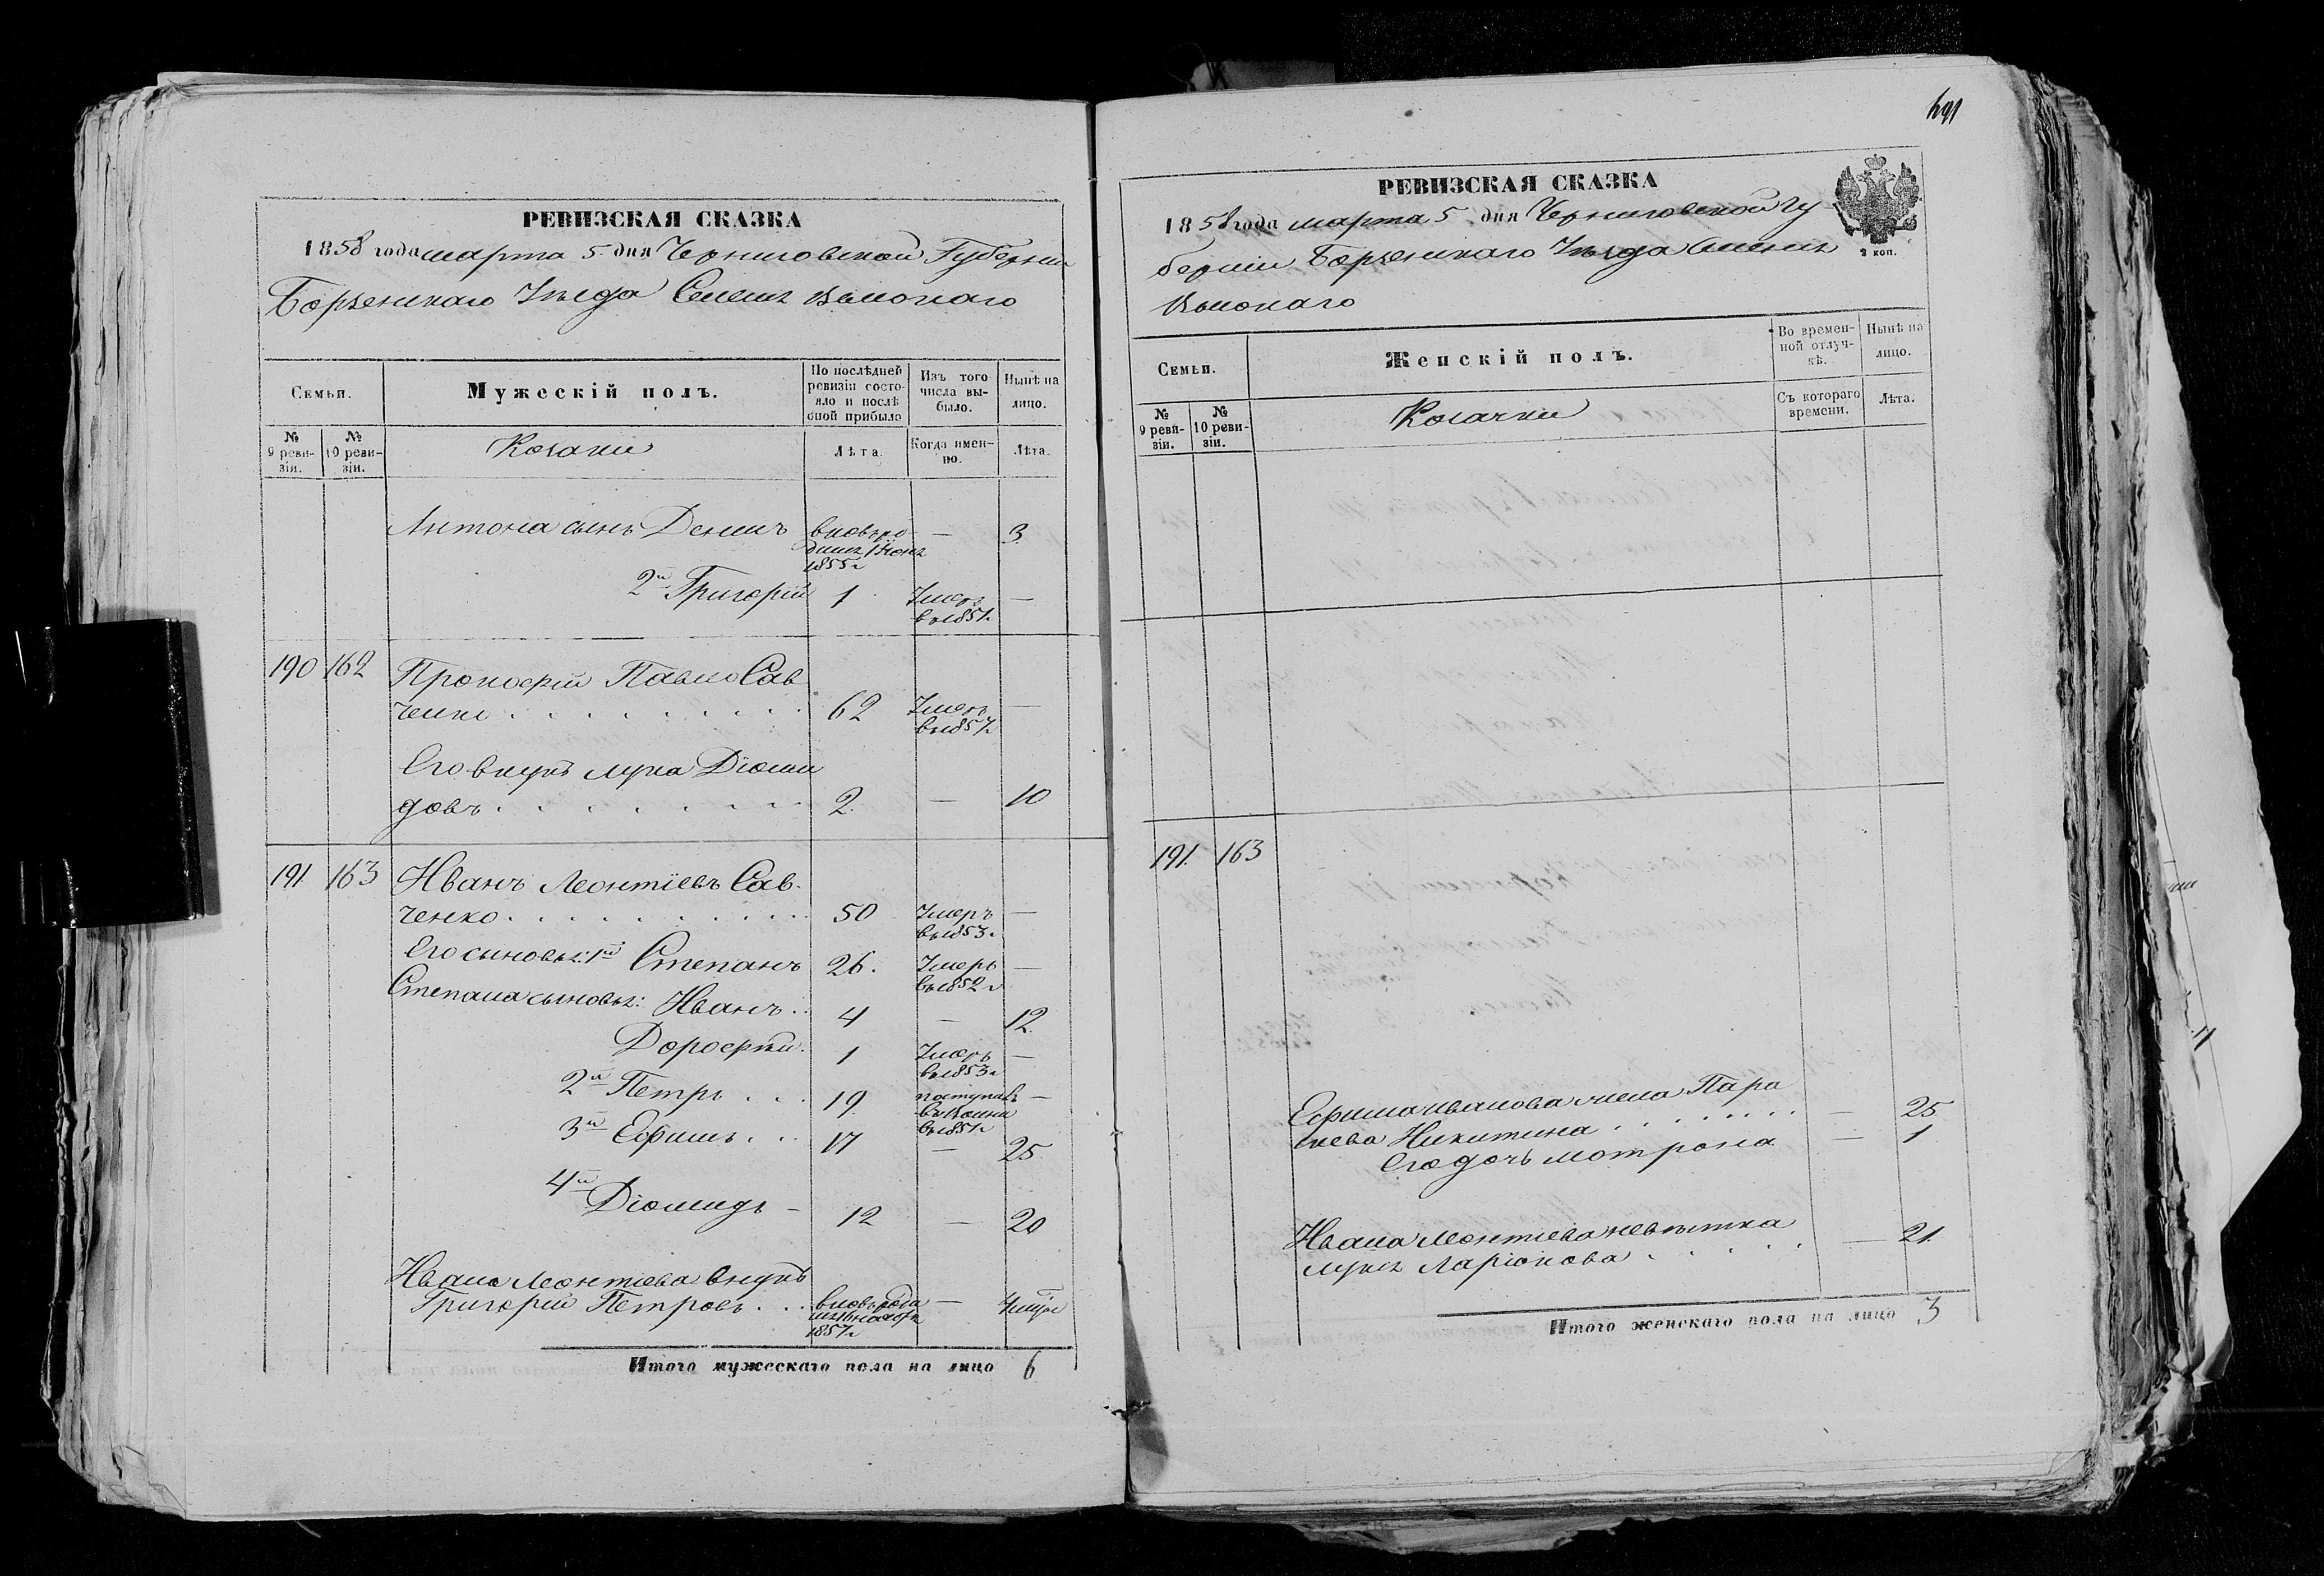 РЕВИЗСКАЯ СКАЗКА
1858 года марта 5 дня Черниговской Губернии
Борзенскаго Уѣзда
Семьи.
Мужескій полъ.
По послѣдней ревизіи состояло и послѣ оной прибыло
Изъ того числа выбыло.
Нынѣ на лицо.
№ 9 ревизіи.
№ 10 ревизіи.
Козаки
Лѣта.
Когда именно.
Лѣта.
Антона сынъ Демидъ вновь ро — 3
1855г
2й Григорій 1 Умеръ —
в 1851г
190 162 Прокофій Савченко 62 Умеръ —
в 1857г
Его внукъ Лука Діоми
довъ 2 — 10
191 163 Иванъ Леонтіевъ Сав
ченко 50 Умеръ —
в 1853г
Его сыновья: 1й Степанъ 26. Умеръ —
в 1852г
Степана сыновья: Иванъ 4 — 12
Дорофей 1 Умеръ —
в 1853г
2й Петръ 19 поступилъ —
в 1851г
3й Ефимъ 17 — 25
4й Діомидъ 12 — 20
Ивана Леонтіева внукъ
Григорій Петровъ вновь —
1857г
Итого мужескаго пола на лицо 6
691
РЕВИЗСКАЯ СКАЗКА
1858 года марта 5 дня Черниговской Гу
берніи Борзенскаго Уѣзда
3 коп.
Семьи.
Женскій полъ.
Во временной отлучкѣ.
Нынѣ на лицо.
№ 9 ревизіи.
№ 10 ревизіи.
Козачки
Съ котораго времени.
Лѣта.
191. 163
Ефима Иванова жена Пара
скева Никитина — 25
Его дочь Мотрона — 1
Ивана Леонтіева невѣстка
Ларіонова — 21
Итого женскаго пола на лицо 3